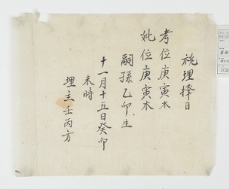 祧埋擇日
考位庚寅木
妣位庚寅木
嗣孫乙卯生
十一月十五日癸卯
未時
埋主壬丙方